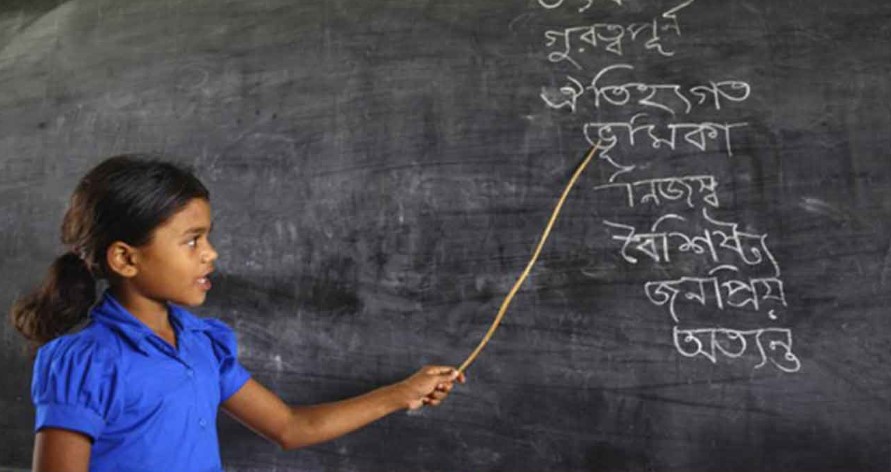 গুরত্বপূর্ন
ঐতিহ্যগত
ভূমিকা
নিজস্ব
বৈশিষ্ট্য
জনপ্রিয়
অত্যন্ত